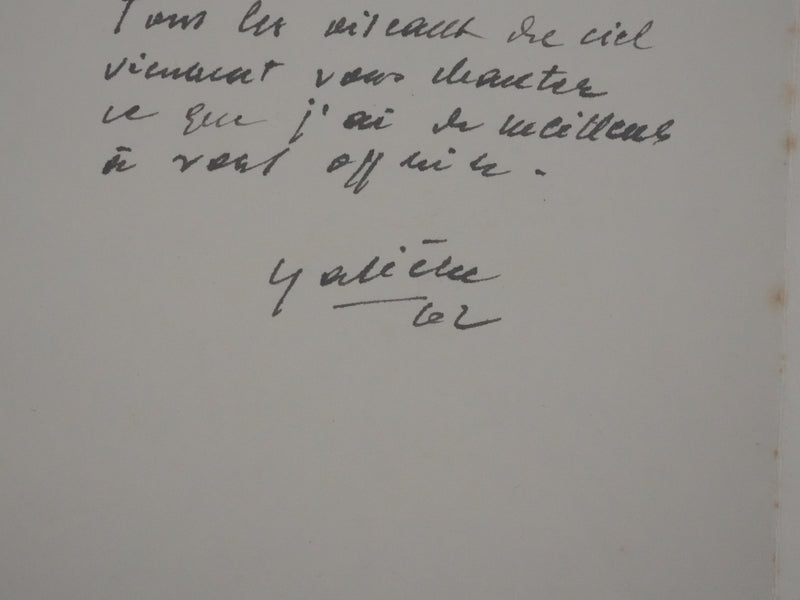 Tous les oiseaux du ciel
viennent vous chanter
ce que j'ai de meilleur
à vous offrir.
62